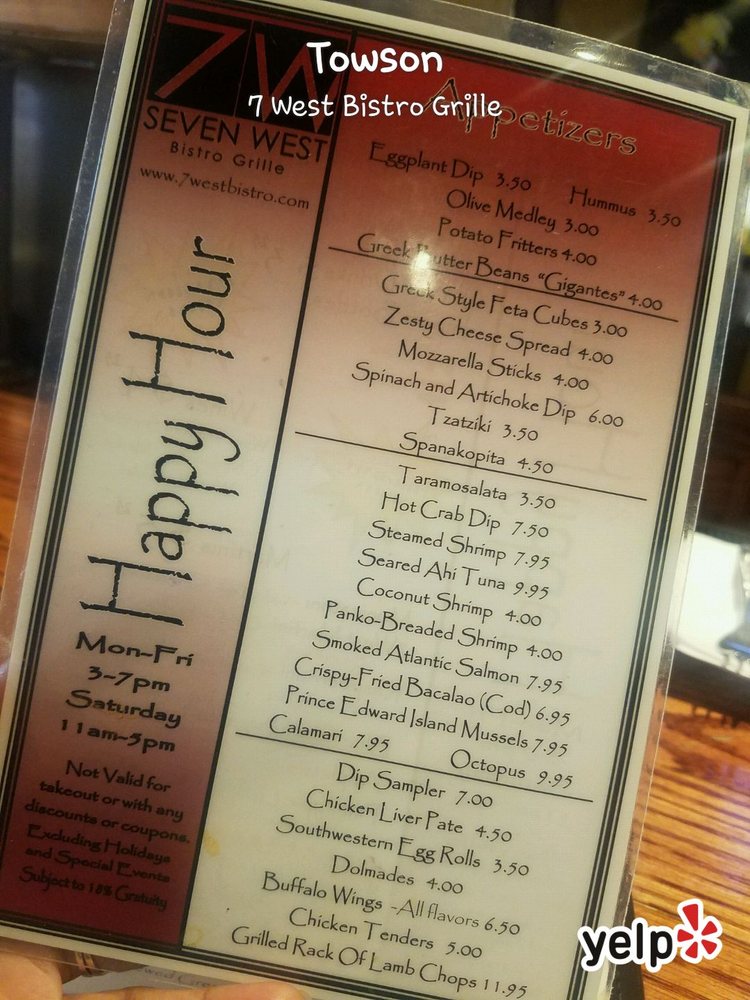 Towson
7 West Bistro Grille
7W
SEVEN WEST
Bistro Grille
www.7westbistro.com
Happy Hour
Mon-Fri
3~7pm
Saturday
11am~5pm
Not Valid for
takeout or with any
discounts or coupons.
Excluding Holidays
and Special Events
Subject to 18% Gratuity
Appetizers
Eggplant Dip 3.50 Hummus 3.50
Olive Medley 3.00
Potato Fritters 4.00
Greek Butter Beans "Gigantes" 4.00
Greek Style Feta Cubes 3.00
Zesty Cheese Spread 4.00
Mozzarella Sticks 4.00
Spinach and Artichoke Dip 6.00
Tzatziki 3.50
Spanakopita 4.50
Taramosalata 3.50
Hot Crab Dip 7.50
Steamed Shrimp 7.95
Seared Ahi Tuna 9.95
Coconut Shrimp 4.00
Panko-Breaded Shrimp 4.00
Smoked Atlantic Salmon 7.95
Crispy-Fried Bacalao (Cod) 6.95
Prince Edward Island Mussels 7.95
Calamari 7.95 Octopus 9.95
Dip Sampler 7.00
Chicken Liver Pate 4.50
Southwestern Egg Rolls 3.50
Dolmades 4.00
Buffalo Wings -All flavors 6.50
Chicken Tenders 5.00
Grilled Rack Of Lamb Chops 11.95
yelp